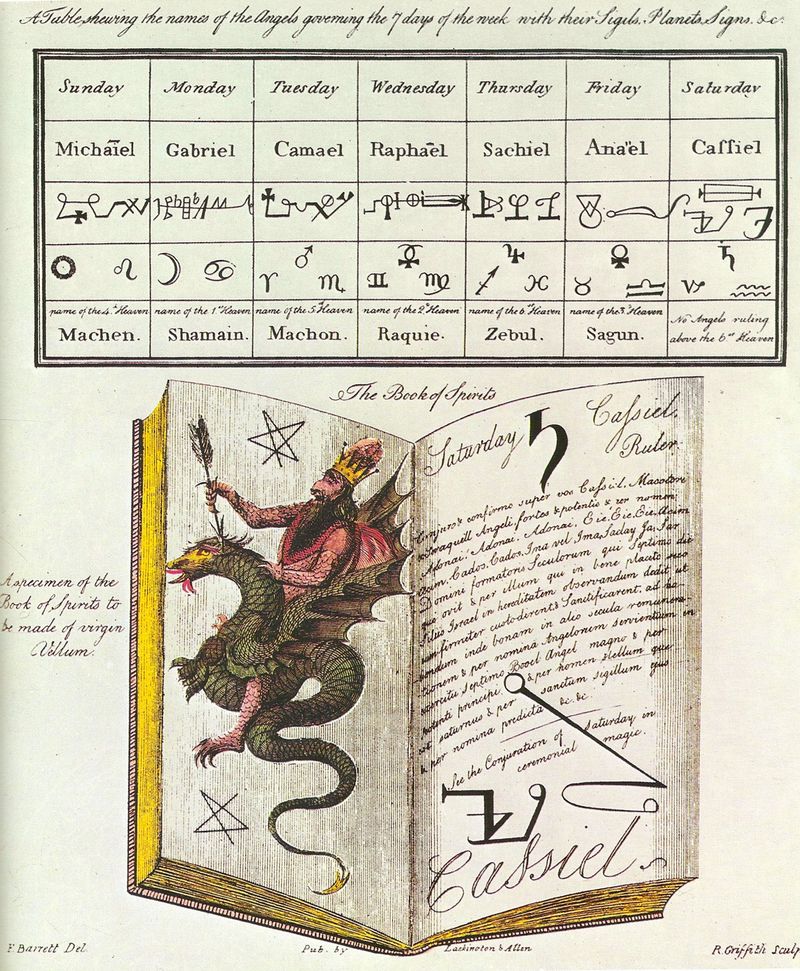 A Table, shewing the names of the Angels governing the 7 days of the week with their Sigils, Planets, Signs, &c.
Sunday Monday Tuesday Wednesday Thursday Friday Saturday
Michaïel Gabriel Camael Raphaël Sachiel Anaël Caſſiel
☉ ♌ ☽ ♋ ♂ ♈ ♏ ☿ ♊ ♍ ♃ ♐ ♓ ♀ ♉ ♎ ♄ ♑ ♒
name of the 4.th Heaven name of the 1st Heaven name of the 5.th Heaven name of the 2.d Heaven name of the 6.th Heaven name of the 3.d Heaven No Angels ruling
Machen. Shamain. Machon. Raquie. Zebul. Sagun. above the 6.th Heaven
The Book of Spirits
Saturday ♄ Caſsiel.
Ruler.
Conjuro & confirmo super vos Caſsiel. Macoton
Angeli, fortes & potentes & per nomen,
Adonai, Adonai, Adonai, Eie, Eie, Eie, Acim
Acim, Cados, Cados, Ima vel Ima, Saday, Ja, Sar
Domini formatoris Seculorum qui Septimo die
& per illum qui in bene placito suo
filiis Israel in hereditatem observandum dedit ut
firmiter custodirent & Sanctificarent, ad
inde bonam in alio secula remunera-
tionem & per nomina Angelorum servientium in
exercitu Septimo Booel Angel magno & per
potenti principi & per nomen stellum que
est saturnus & per sanctum sigillum ejus
& per nomina predicta &c. &c.
See the Conjuration of Saturday in
ceremonial magic.
Cassiel.
A specimen of the
Book of Spirits to
be made of virgin
Vellum.
F. Barrett Del. Pub. by Lackington & Allen R. Griffith Sculp